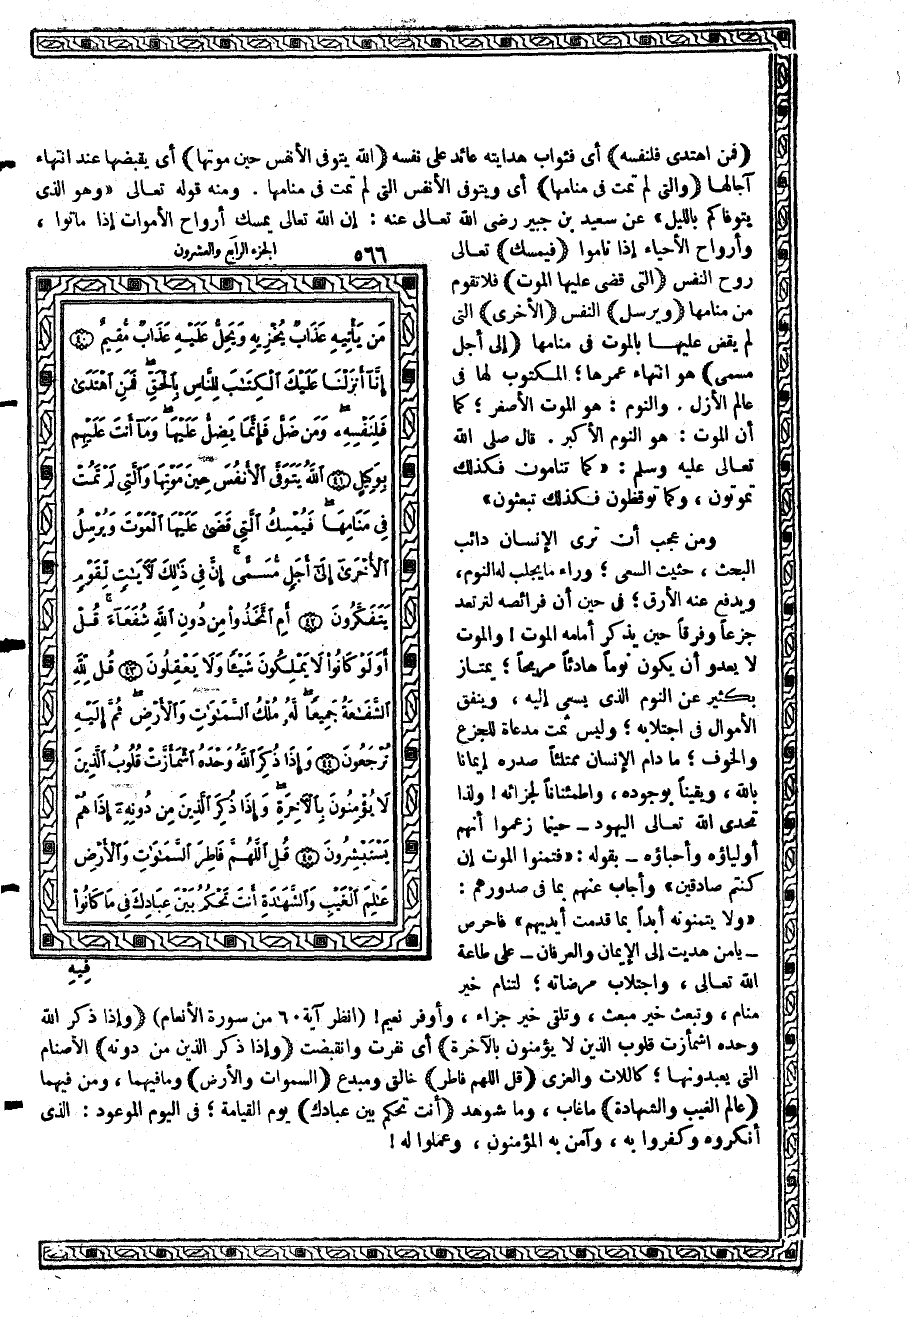 (فمن اهتدى فلنفسه) أى فثواب هدايته عائد على نفسه (الله يتوفى الأنفس حين موتها) أى يقبضها عند انتهاء
آجالها (والتى لم تمت فى منامها) أى ويتوفى الأنفس التى لم تمت فى منامها . ومنه قوله تعالى «وهو الذى
يتوفاكم بالليل» عن سعيد بن جبير رضى الله تعالى عنه : إن الله تعالى يمسك أرواح الأموات إذا ماتوا ،
وأرواح الأحياء إذا ناموا (فيمسك) تعالى
روح النفس (التى قضى عليها الموت) فلا تقوم
من منامها (ويرسل) النفس (الأخرى) التى
لم يقض عليهـا بالموت فى منامها (إلى أجل
مسمى) هو انتهاء عمرها؛ المكتوب لها فى
عالم الأزل . والنوم : هو الموت الأصغر ؛ كما
أن الموت : هو النوم الأكبر . قال صلى الله
تعالى عليه وسلم : «كما تنامون فكذلك
تموتون ، وكما توقظون فكذلك تبعثون»
ومن عجب أن ترى الإنسان دائب
البحث ، حثيث السعى ؛ وراء ما يجلب له النوم،
ويدفع عنه الأرق؛ فى حين أن فرائصه لترتعد
جزعاً وفرقاً حين يذكر أمامه الموت ! والموت
لا يعدو أن يكون نوماً هادئاً مريحاً ؛ يمتـاز
بكثير عن النوم الذى يسعى إليه ، وينفق
الأموال فى اجتلابه ؛ وليس ثمت مدعاة للجزع
والخوف ؛ ما دام الإنسان ممتلئاً صدره إيمانا
بالله ، ويقيناً بوجوده ، واطمئناناً لجزائه ! ولذا
تحدى الله تعالى اليهود ــ حينما زعموا أنهم
أولياؤه وأحباؤه ــ بقوله : «فتمنوا الموت إن
كنتم صادقين» وأجاب عنهم بما فى صدورهم :
«ولا يتمنونه أبداً بما قدمت أيديهم» فاحرص
ــ يا من هديت إلى الإيمان والعرفان ــ على طاعة
الله تعـالى ، واجتلاب مرضاته ؛ لتنام خير
الجزء الرابع والعشرون
٥٦٦
مَن يَأْتِيهِ عَذَابٌ يُخْزِيهِ وَيَحِلُّ عَلَيْهِ عَذَابٌ مُّقِيمٌ ﴿٤٠﴾
إِنَّآ أَنزَلْنَا عَلَيْكَ ٱلْكِتَٰبَ لِلنَّاسِ بِٱلْحَقِّ ۖ فَمَنِ ٱهْتَدَىٰ
فَلِنَفْسِهِۦ ۖ وَمَن ضَلَّ فَإِنَّمَا يَضِلُّ عَلَيْهَا ۖ وَمَآ أَنتَ عَلَيْهِم
بِوَكِيلٍ ﴿٤١﴾ ٱللَّهُ يَتَوَفَّى ٱلْأَنفُسَ حِينَ مَوْتِهَا وَٱلَّتِى لَمْ تَمُتْ
فِى مَنَامِهَا ۖ فَيُمْسِكُ ٱلَّتِى قَضَىٰ عَلَيْهَا ٱلْمَوْتَ وَيُرْسِلُ
ٱلْأُخْرَىٰٓ إِلَىٰٓ أَجَلٍ مُّسَمًّى ۚ إِنَّ فِى ذَٰلِكَ لَأٓيَٰتٍ لِّقَوْمٍ
يَتَفَكَّرُونَ ﴿٤٢﴾ أَمِ ٱتَّخَذُوا۟ مِن دُونِ ٱللَّهِ شُفَعَآءَ ۚ قُلْ
أَوَلَوْ كَانُوا۟ لَا يَمْلِكُونَ شَيْـًٔا وَلَا يَعْقِلُونَ ﴿٤٣﴾ قُل لِّلَّهِ
ٱلشَّفَٰعَةُ جَمِيعًا ۖ لَّهُۥ مُلْكُ ٱلسَّمَٰوَٰتِ وَٱلْأَرْضِ ۖ ثُمَّ إِلَيْهِ
تُرْجَعُونَ ﴿٤٤﴾ وَإِذَا ذُكِرَ ٱللَّهُ وَحْدَهُ ٱشْمَأَزَّتْ قُلُوبُ ٱلَّذِينَ
لَا يُؤْمِنُونَ بِٱلْأٓخِرَةِ ۖ وَإِذَا ذُكِرَ ٱلَّذِينَ مِن دُونِهِۦٓ إِذَا هُمْ
يَسْتَبْشِرُونَ ﴿٤٥﴾ قُلِ ٱللَّهُمَّ فَاطِرَ ٱلسَّمَٰوَٰتِ وَٱلْأَرْضِ
عَٰلِمَ ٱلْغَيْبِ وَٱلشَّهَٰدَةِ أَنتَ تَحْكُمُ بَيْنَ عِبَادِكَ فِى مَا كَانُوا۟
فِيهِ
منام ، وتبعث خير مبعث ، وتلقى خير جزاء ، وأوفر نعيم! (انظر آية ٦٠ من سورة الأنعام) (وإذا ذكر الله
وحده اشمأزت قلوب الذين لا يؤمنون بالآخرة) أى نفرت وانقبضت (وإذا ذكر الذين من دونه) الأصنام
التى يعبدونهـا ؛ كاللات والعزى (قل اللهم فاطر) خالق ومبدع (السموات والأرض) ومافيهما ، ومن فيهما
(عالم الغيب والشهادة) ماغاب ، وما شوهد (أنت تحكم بين عبادك) يوم القيامة ؛ فى اليوم الموعود : الذى
أنكروه وكفروا به ، وآمن به المؤمنون ، وعملوا له !